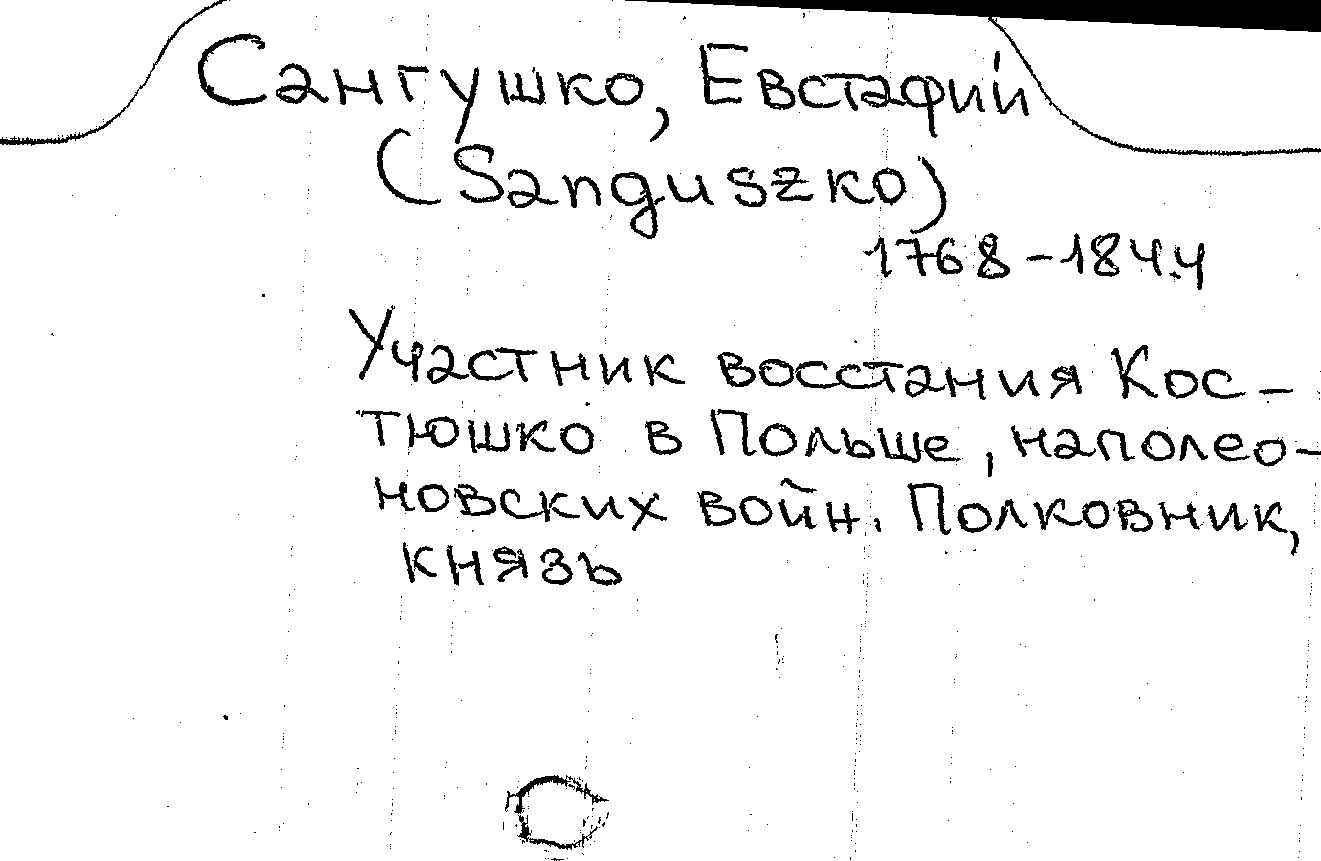 Сангушко, Евстафий
(Sanguszko)
1768-1844
Участник восстания Кос-
тюшко в Польше, наполео-
новских войн. Полковник,
князь